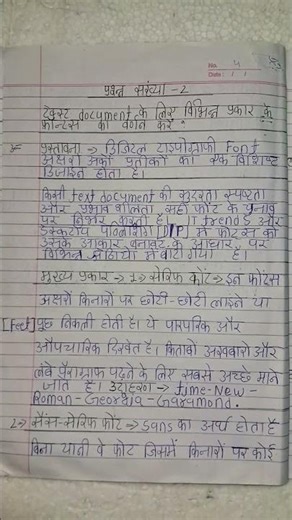 No. 4
Date: / /
प्रश्न संख्या - 2
टेक्स्ट document के लिए विभिन्न प्रकार के
फॉन्टस का वर्णन करें
प्रस्तावना → डिजिटल टाइपोग्राफी Font
अक्षरों अंकों प्रतीकों का एक विशिष्ट
डिजाइन होता है।
किसी text document की सुंदरता स्पष्टता
और प्रभावशीलता सही फोंट के चुनाव
पर निर्भर करती है। IT trends और
डेस्कटॉप पब्लिशिंग [DTP] में फोंटस को
उसके आकार बनावट के आधार पर
विभिन्न श्रेणियों में बांटा गया है।
मुख्य प्रकार → 1→ सेरिफ फोंट → इन फोंटस
अक्षरों किनारों पर छोटी-छोटी लाइने या
[Feet] पूछ निकली होती है। ये पारंपरिक और
औपचारिक दिखते है। किताबों अखबारों और
लंबे पैराग्राफ पढ़ने के लिए सबसे अच्छे माने
जाते है। उदाहरण → Time-New-
Roman-Georgia-Garamond.
2→ सैंस-सेरिफ फोंट → Sans का अर्थ होता है
बिना यानी वे फोंट जिसमें किनारों पर कोई